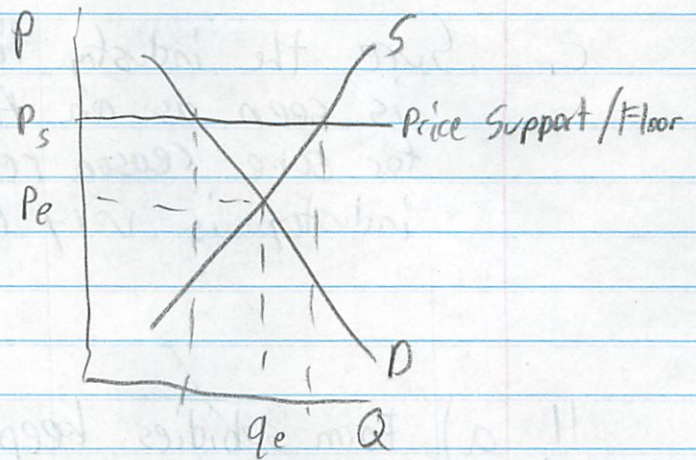 P
S
Ps
Price Support/Floor
Pe
D
qe
Q